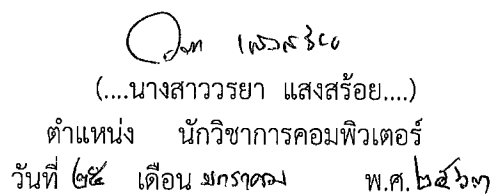 (....นางสาววรยา แสงสร้อย....)
ตำแหน่ง นักวิชาการคอมพิวเตอร์
วันที่ ๒๕ เดือน มกราคม พ.ศ. ๒๕๖๓